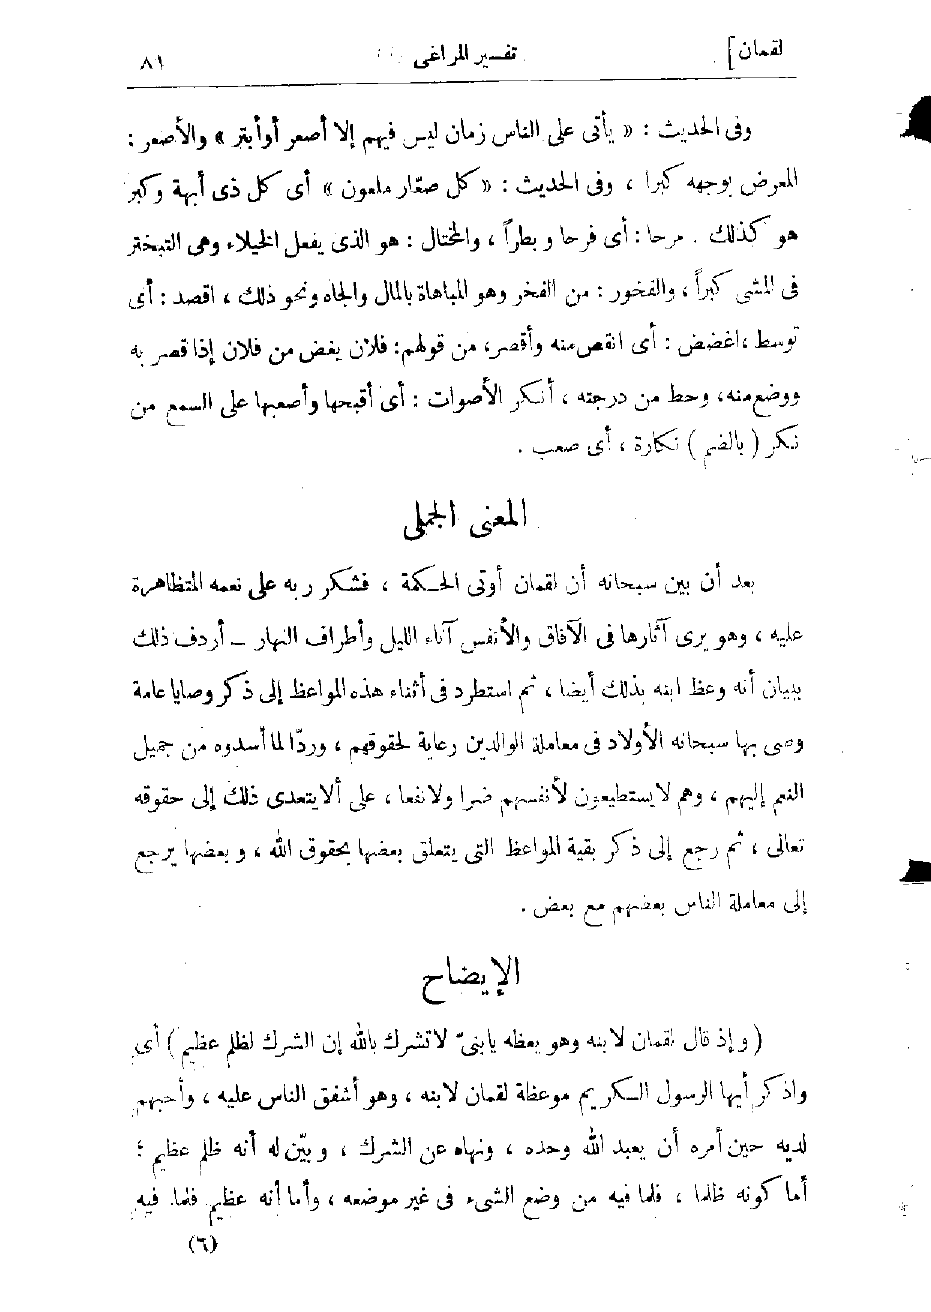 لقمان]
تفسير المراغى
٨١
وفى الحديث : « يأتى على الناس زمان ليس فيهم إلا أصعر أوأبتر » والأصعر :
المعرض بوجهه كبرا ، وفى الحديث : « كل صعّار ملعون » أى كل ذى أبهة وكبر
هو كذلك . مرحا : أى فرحا وبطراً ، والمختال : هو الذى يفعل الخيلاء وهى التبختر
فى المشى كبراً ، والفخور : من الفخر وهو المباهاة بالمال والجاه ونحو ذلك ، اقصد : أى
توسط ، اغضض : أى انقص منه وأقصر، من قولهم: فلان يغض من فلان إذا قصر به
ووضع منه، وحط من درجته ، أنكر الأصوات : أى أقبحها وأصعبها على السمع من
نكر ( بالضم ) نكارة ، أى صعب .
المعنى الجملى
بعد أن بين سبحانه أن لقمان أوتى الحكمة ، فشكر ربه على نعمه المتظاهرة
عليه ، وهو يرى آثارها فى الآفاق والأنفس آناء الليل وأطراف النهار – أردف ذلك
ببيان أنه وعظ ابنه بذلك أيضا ، ثم استطرد فى أثناء هذه المواعظ إلى ذكر وصايا عامة
وصى بها سبحانه الأولاد فى معاملة الوالدين رعاية لحقوقهم ، وردّا لما أسدوه من جميل
النعم إليهم ، وهم لا يستطيعون لأنفسهم ضرا ولا نفعا ، على ألا يتعدى ذلك إلى حقوقه
تعالى ، ثم رجع إلى ذكر بقية المواعظ التى يتعلق بعضها بحقوق الله ، وبعضها يرجع
إلى معاملة الناس بعضهم مع بعض .
الإيضاح
( وإذ قال لقمان لابنه وهو يعظه يابنىّ لاتشرك بالله إن الشرك لظلم عظيم ) أى
واذكر أيها الرسول الكريم موعظة لقمان لابنه ، وهو أشفق الناس عليه ، وأحبهم
لديه حين أمره أن يعبد الله وحده ، ونهاه عن الشرك ، وبيّن له أنه ظلم عظيم ؛
أما كونه ظلما ، فلما فيه من وضع الشىء فى غير موضعه ، وأما أنه عظيم فلما فيه
(٦)